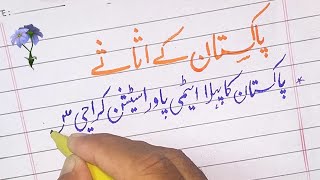 پاکستان کے اثاثے
* پاکستان کا پہلا ایٹمی پاور اسٹیشن کراچی میں